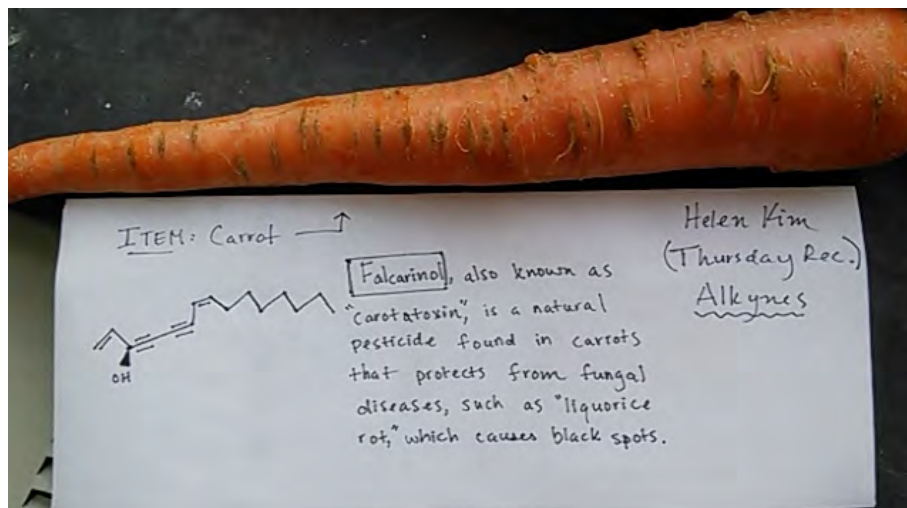 ITEM: Carrot
Helen Kim
(Thursday Rec.)
Alkynes
Falcarinol, also known as
"carotatoxin", is a natural
pesticide found in carrots
that protects from fungal
diseases, such as "liquorice
rot," which causes black spots.
OH